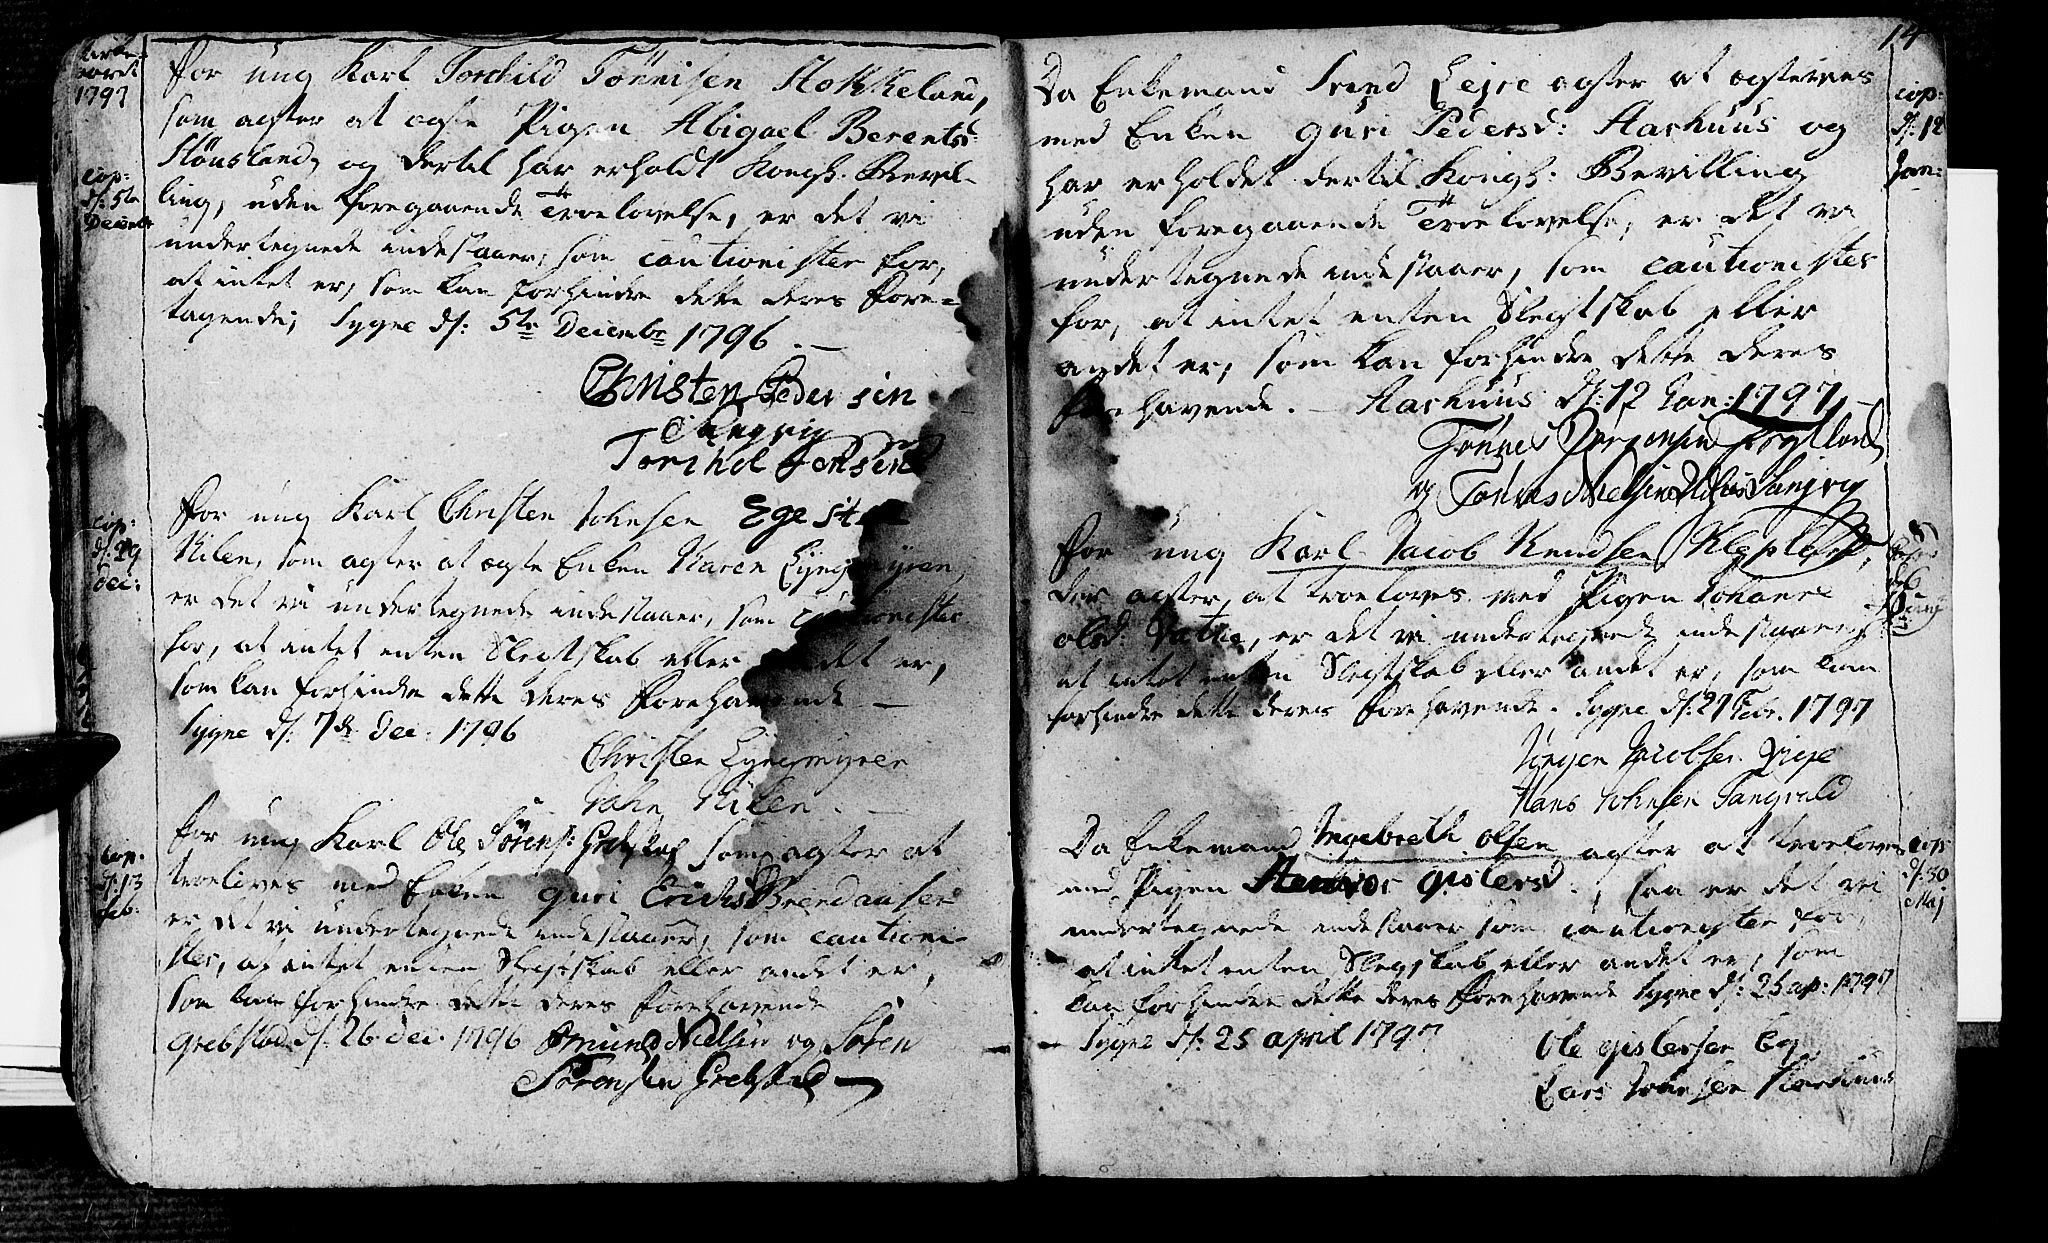 Kirke-
aaret
1797
For ung Karl Torchild Tönnisen Stokkeland,
som agter at ægte Pigen Abigael Berentsd:
Stöusland, og dertil har erholdt Kongl: Bevil-
cop:
d: 5te
Decembr
ling, uden foregaaende Troelovelse, er det vi
undertegnede indestaaer, som cautionister for,
at intet er, som kan forhindre dette deres Fore-
tagende; Sygne d: 5te Decembr 1796. –
Christen Pedersen
Tangvig
Torchel Jensen
cop:
d: 29
Dec:
For ung Karl Christen Johnsen
Kilen, som agter at ægte Enken Karen Lyngmyren,
er det vi undertegnede indestaaer, som cautionister
for, at intet enten Slegtskab eller andet er,
som kan forhindre dette deres Forehavende –
Sygne d: 7de Dec: 1796
Christen Lyngmyren
John Kilen. –
cop.
d: 13
feb.
For ung Karl Ole Sörens: Grebstad som agter at
troeloves med Enken Guri
er det vi undertegnede indestaaer, som cautioni-
ster, at intet enten Slegtskab eller andet er,
som kan forhindre dette deres Forehavende
Grebstad d: 26 dec. 1796 Amund Nielsen og Sören
Sörensen Grebstad –
14
Da Enkemand Trond Lejre agter at ægtevies
med Enken Guri Pedersd: Aarhuus og
cop:
d: 12
Jan:
har erholdet dertil Kongl: Bevilling
uden foregaaende Troelovelse, er det vi
undertegnede indestaaer, som cautionister
for, at intet enten Slegtskab eller
andet er, som kan forhindre dette deres
Forehavende. – Aarhuus d: 12 Jan: 1797 –
Tönnes Jörgensen
og Tönnes Nielsen Tangvig
For ung Karl Jacob Knudsen Klepland,
der agter at troeloves med Pigen Johanne
Olsd: Vatne, er det vi undertegnede indestaaer,
at intet enten Slegtskab eller andet er, som kan
forhindre dette deres Forehavende. Sygne d: 27 Febr. 1797
Jörgen Jacobsen Vige
Hans Johnsen Tangvald
Da Enkemand Ingebreth Olsen agter at troeloves
cop:
d: 30
Maj
med Pigen Gislersd., saa er det vi
undertegnede indestaaer som cautionister for,
at intet enten Slegskab eller andet er, som
kan forhindre dette deres Forehavende Sygne d: 25 ap: 1797
Sygne d: 25 april 1797
Ole Gislersen Eg
Lars Johnsen Aarhuus